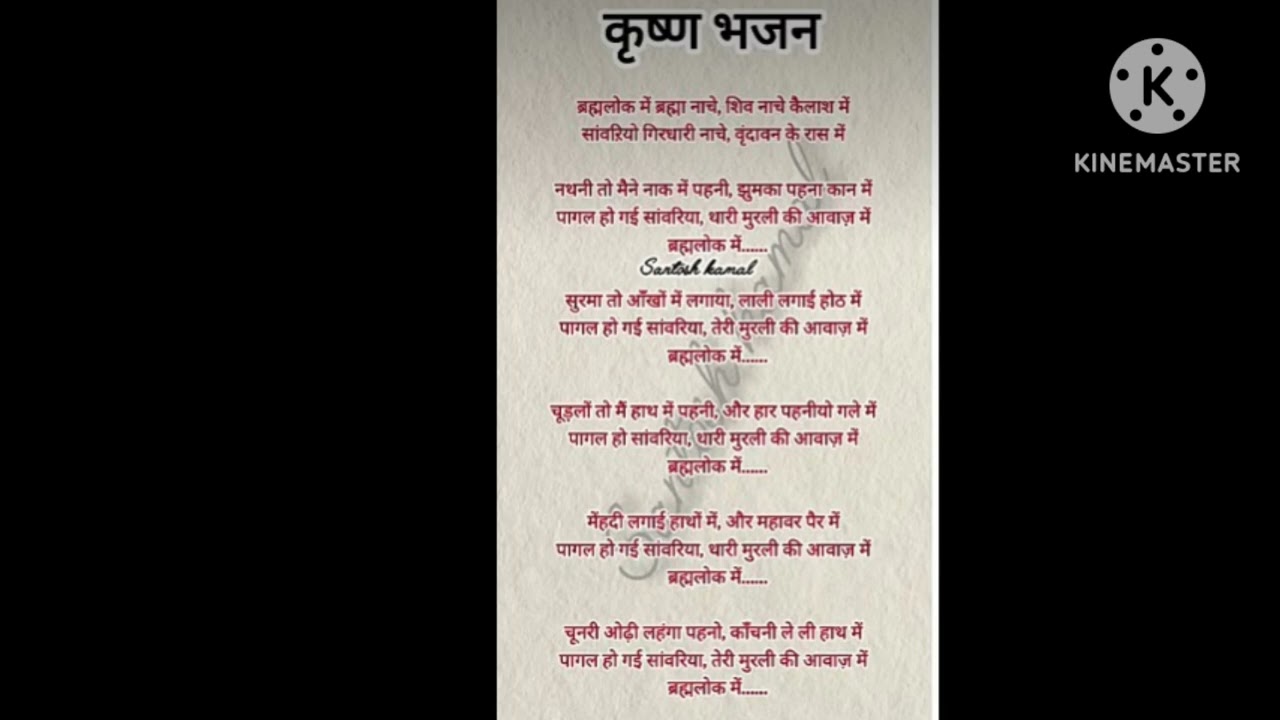 कृष्ण भजन
ब्रह्मलोक में ब्रह्मा नाचे, शिव नाचे कैलाश में
सांवऱियो गिरधारी नाचे, वृंदावन के रास में
नथनी तो मैने नाक में पहनी, झुमका पहना कान में
पागल हो गई सांवरिया, थारी मुरली की आवाज़ में
ब्रह्मलोक में......
Santosh kamal
सुरमा तो आँखों में लगाया, लाली लगाई होठ में
पागल हो गई सांवरिया, तेरी मुरली की आवाज़ में
ब्रह्मलोक में......
चूड़लों तो मैं हाथ में पहनी, और हार पहनीयो गले में
पागल हो सांवरिया, थारी मुरली की आवाज़ में
ब्रह्मलोक में......
मेंहदी लगाई हाथों में, और महावर पैर में
पागल हो गई सांवरिया, थारी मुरली की आवाज़ में
ब्रह्मलोक में......
चूनरी ओढ़ी लहंगा पहनो, काँचनी ले ली हाथ में
पागल हो गई सांवरिया, तेरी मुरली की आवाज़ में
ब्रह्मलोक में......
Santosh kamal
K
KINEMASTER